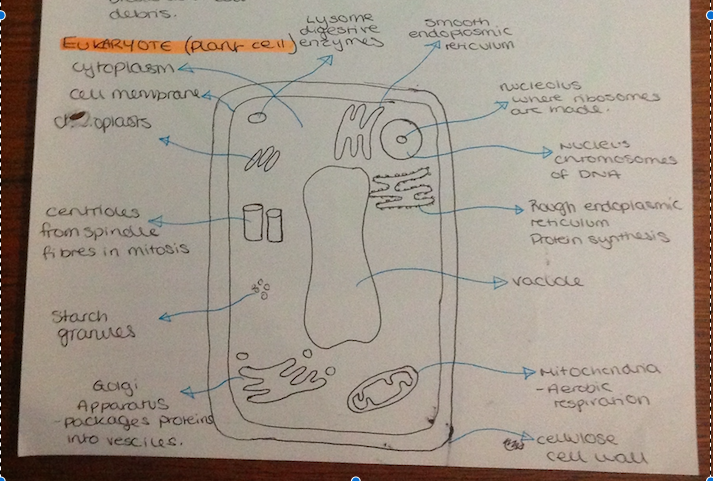 debris.
EUKARYOTE (plant cell)
Lysome
digestive
enzymes
smooth
endoplasmic
reticulum
cytoplasm
cell membrane
nucleolus
where ribosomes
are made.
nucleus
chromosomes
of DNA
centrioles
from spindle
fibres in mitosis
Rough endoplasmic
reticulum
Protein synthesis
vacuole
Starch
granules
Golgi
Apparatus
-packages proteins
into vesciles.
Mitochondria
-Aerobic
respiration
cellulose
cell wall